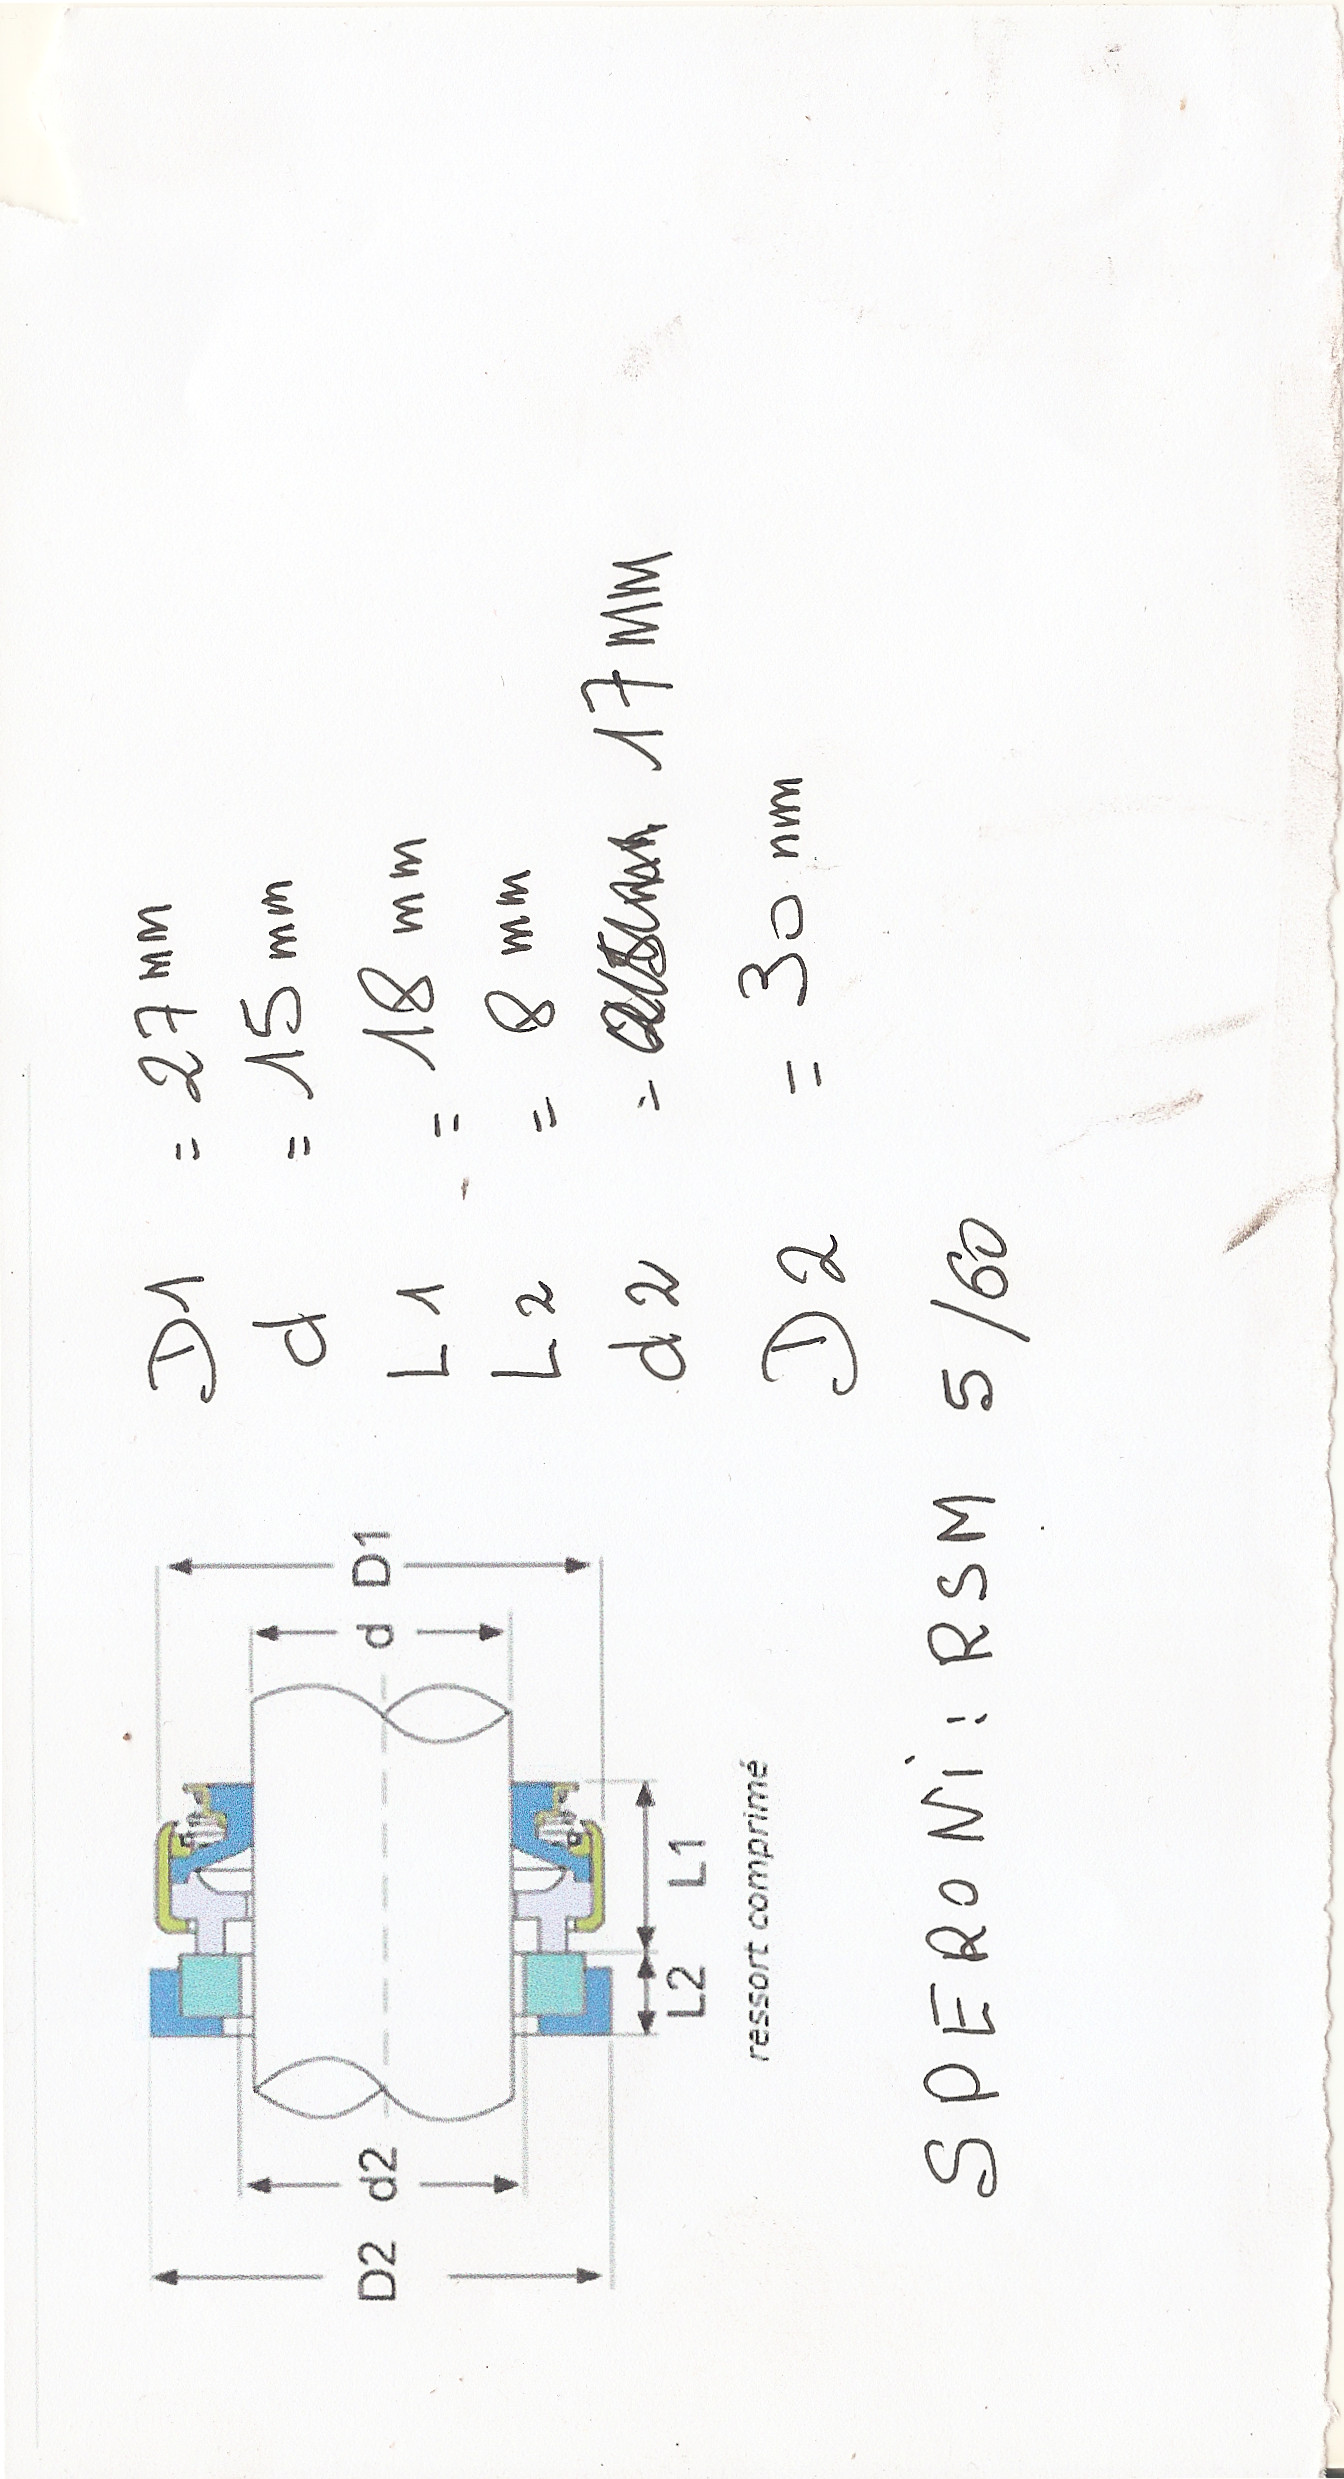 D1 = 27 mm
d = 15 mm
L1 = 18 mm
L2 = 8 mm
d2 = 17 MM
D2 = 30 mm
SPERONi : RSM 5/60
D2 d2 d D1
L2 L1
ressort comprimé